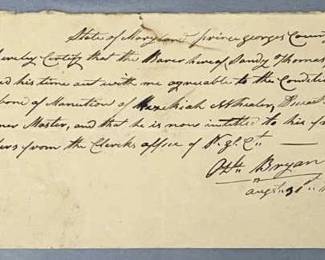 State of Maryland prince georges Coun
hereby Certify that the Barer here of Sandy Thomas
his time out with me agreeable to the Conditi
of Manution of Hezekiah Wheeler, Deceas
Master, and that he is now intitled to his f
from the Clerks office of P. g. Cty
Bryan
augst. 31st